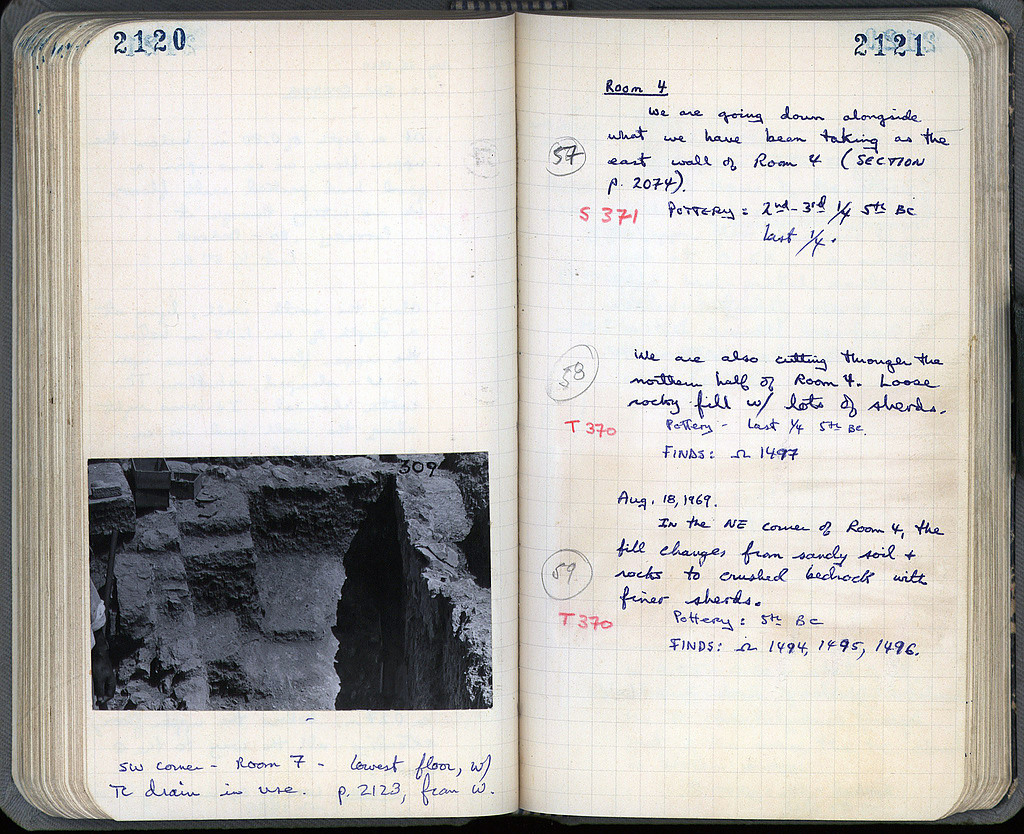 2120
309
SW corner - Room 7 - lowest floor, w/
TC drain in use. p. 2123, from W.
2121
Room 4
We are going down alongside
what we have been taking as the
57
east wall of Room 4 (SECTION
p. 2074).
S 371 POTTERY: 2nd-3rd 1/4 5th BC
last 1/4.
We are also cutting through the
58
northern half of Room 4. Loose
rocky fill w/ lots of sherds.
T 370 Pottery - Last 1/4 5th BC.
FINDS: Ω 1497
Aug. 18, 1969.
In the NE corner of Room 4, the
fill changes from sandy soil +
59
rocks to crushed bedrock with
finer sherds.
T 370 Pottery: 5th BC
FINDS: Ω 1494, 1495, 1496.